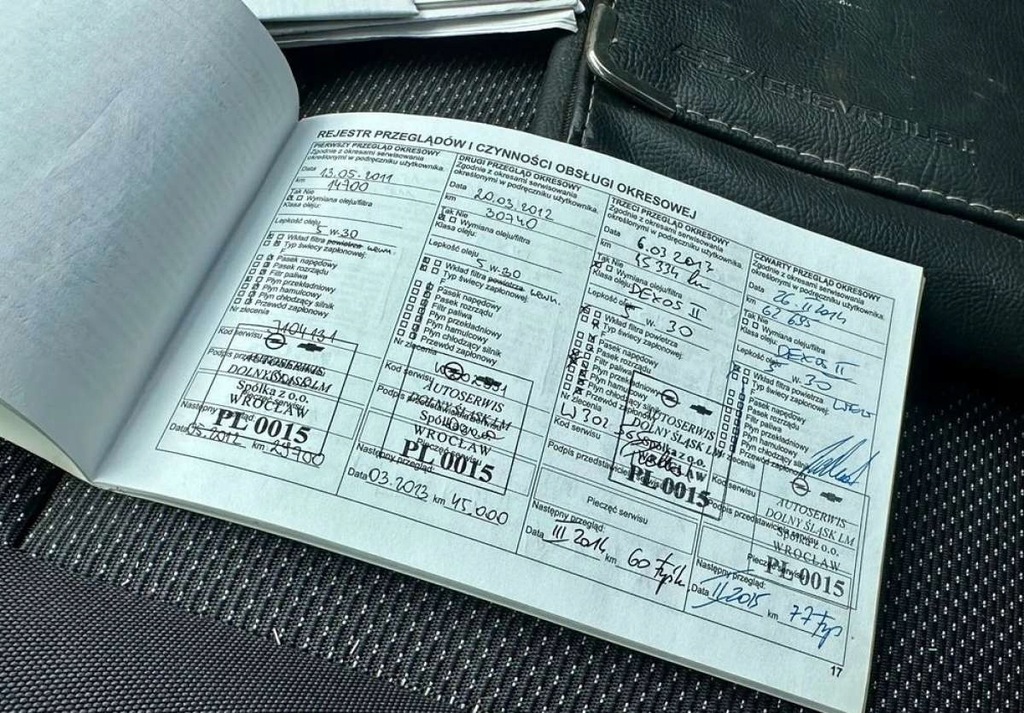 CHEVROLET
REJESTR PRZEGLĄDÓW I CZYNNOŚCI OBSŁUGI OKRESOWEJ
PIERWSZY PRZEGLĄD OKRESOWY
Zgodnie z okresami serwisowania
określonymi w podręczniku użytkownika.
Data 13.05.2011
km 14700
Tak Nie
Wymiana oleju/filtra
Klasa oleju:
Lepkość oleju
5 W-30
Wkład filtra powietrza wewn.
Typ świecy zapłonowej:
Pasek napędowy
Pasek rozrządu
Filtr paliwa
Płyn przekładniowy
Płyn hamulcowy
Płyn chłodzący silnik
Przewód zapłonowy
Kod serwisu
AUTOSERWIS
DOLNY ŚLĄSK LM
Spółka z o.o.
WROCŁAW
PL 0015
Następny przegląd:
Data 05.2012 km 29700
DRUGI PRZEGLĄD OKRESOWY
Zgodnie z okresami serwisowania
określonymi w podręczniku użytkownika.
Data 20.03.2012
km 30740
Tak Nie
Wymiana oleju/filtra
Klasa oleju:
Lepkość oleju
5 W-30
Wkład filtra powietrza wewn.
Typ świecy zapłonowej:
Pasek napędowy
Pasek rozrządu
Filtr paliwa
Płyn przekładniowy
Płyn hamulcowy
Płyn chłodzący silnik
Przewód zapłonowy
Nr zlecenia
Kod serwisu
AUTOSERWIS
DOLNY ŚLĄSK LM
Spółka z o.o.
WROCŁAW
PL 0015
Następny przegląd:
Data 03.2013 km 45.000
TRZECI PRZEGLĄD OKRESOWY
Zgodnie z okresami serwisowania
określonymi w podręczniku użytkownika.
Data
km
Tak Nie
Wymiana oleju/filtra
Klasa oleju: DEXOS II
Lepkość oleju
5 W-30
Wkład filtra powietrza
Typ świecy zapłonowej:
Pasek napędowy
Pasek rozrządu
Filtr paliwa
Płyn przekładniowy
Płyn hamulcowy
Płyn chłodzący silnik
Przewód zapłonowy
Nr zlecenia
Kod serwisu
AUTOSERWIS
DOLNY ŚLĄSK LM
Spółka z o.o.
WROCŁAW
PL 0015
Podpis przedstawiciela
Pieczęć serwisu
Następny przegląd:
Data III 2014 km 60 tyś.
CZWARTY PRZEGLĄD OKRESOWY
Zgodnie z okresami serwisowania
określonymi w podręczniku użytkownika.
Data 26.II 2014
km 62 695
Tak Nie
Wymiana oleju/filtra
Klasa oleju: DEXOS II
Lepkość oleju
5 W-30
Wkład filtra powietrza
Typ świecy zapłonowej:
Pasek napędowy
Pasek rozrządu
Filtr paliwa
Płyn przekładniowy
Płyn hamulcowy
Płyn chłodzący silnik
Przewód zapłonowy
Nr zlecenia
Kod serwisu
AUTOSERWIS
DOLNY ŚLĄSK LM
Podpis przedstawiciela serwisu
Spółka z o.o.
WROCŁAW
PL 0015
Następny przegląd:
Data II 2015 km 77 tyś
17